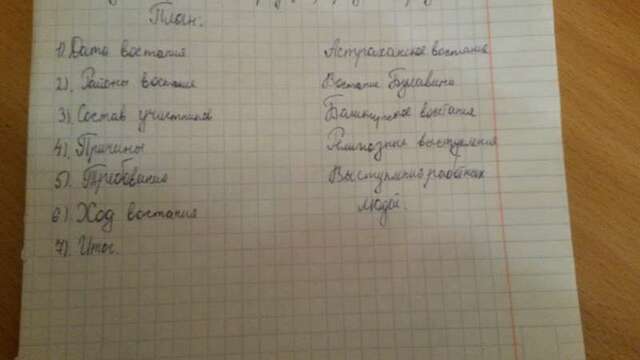 План.
1) Дата востания
2). Районы востания
3). Состав участников
4). Причины
5). Требования
6). Ход востания
7). Итог.
Астраханское востание
Востание Булавина
Башкирское востания
Религиозные выступления
Выступление работных
людей.